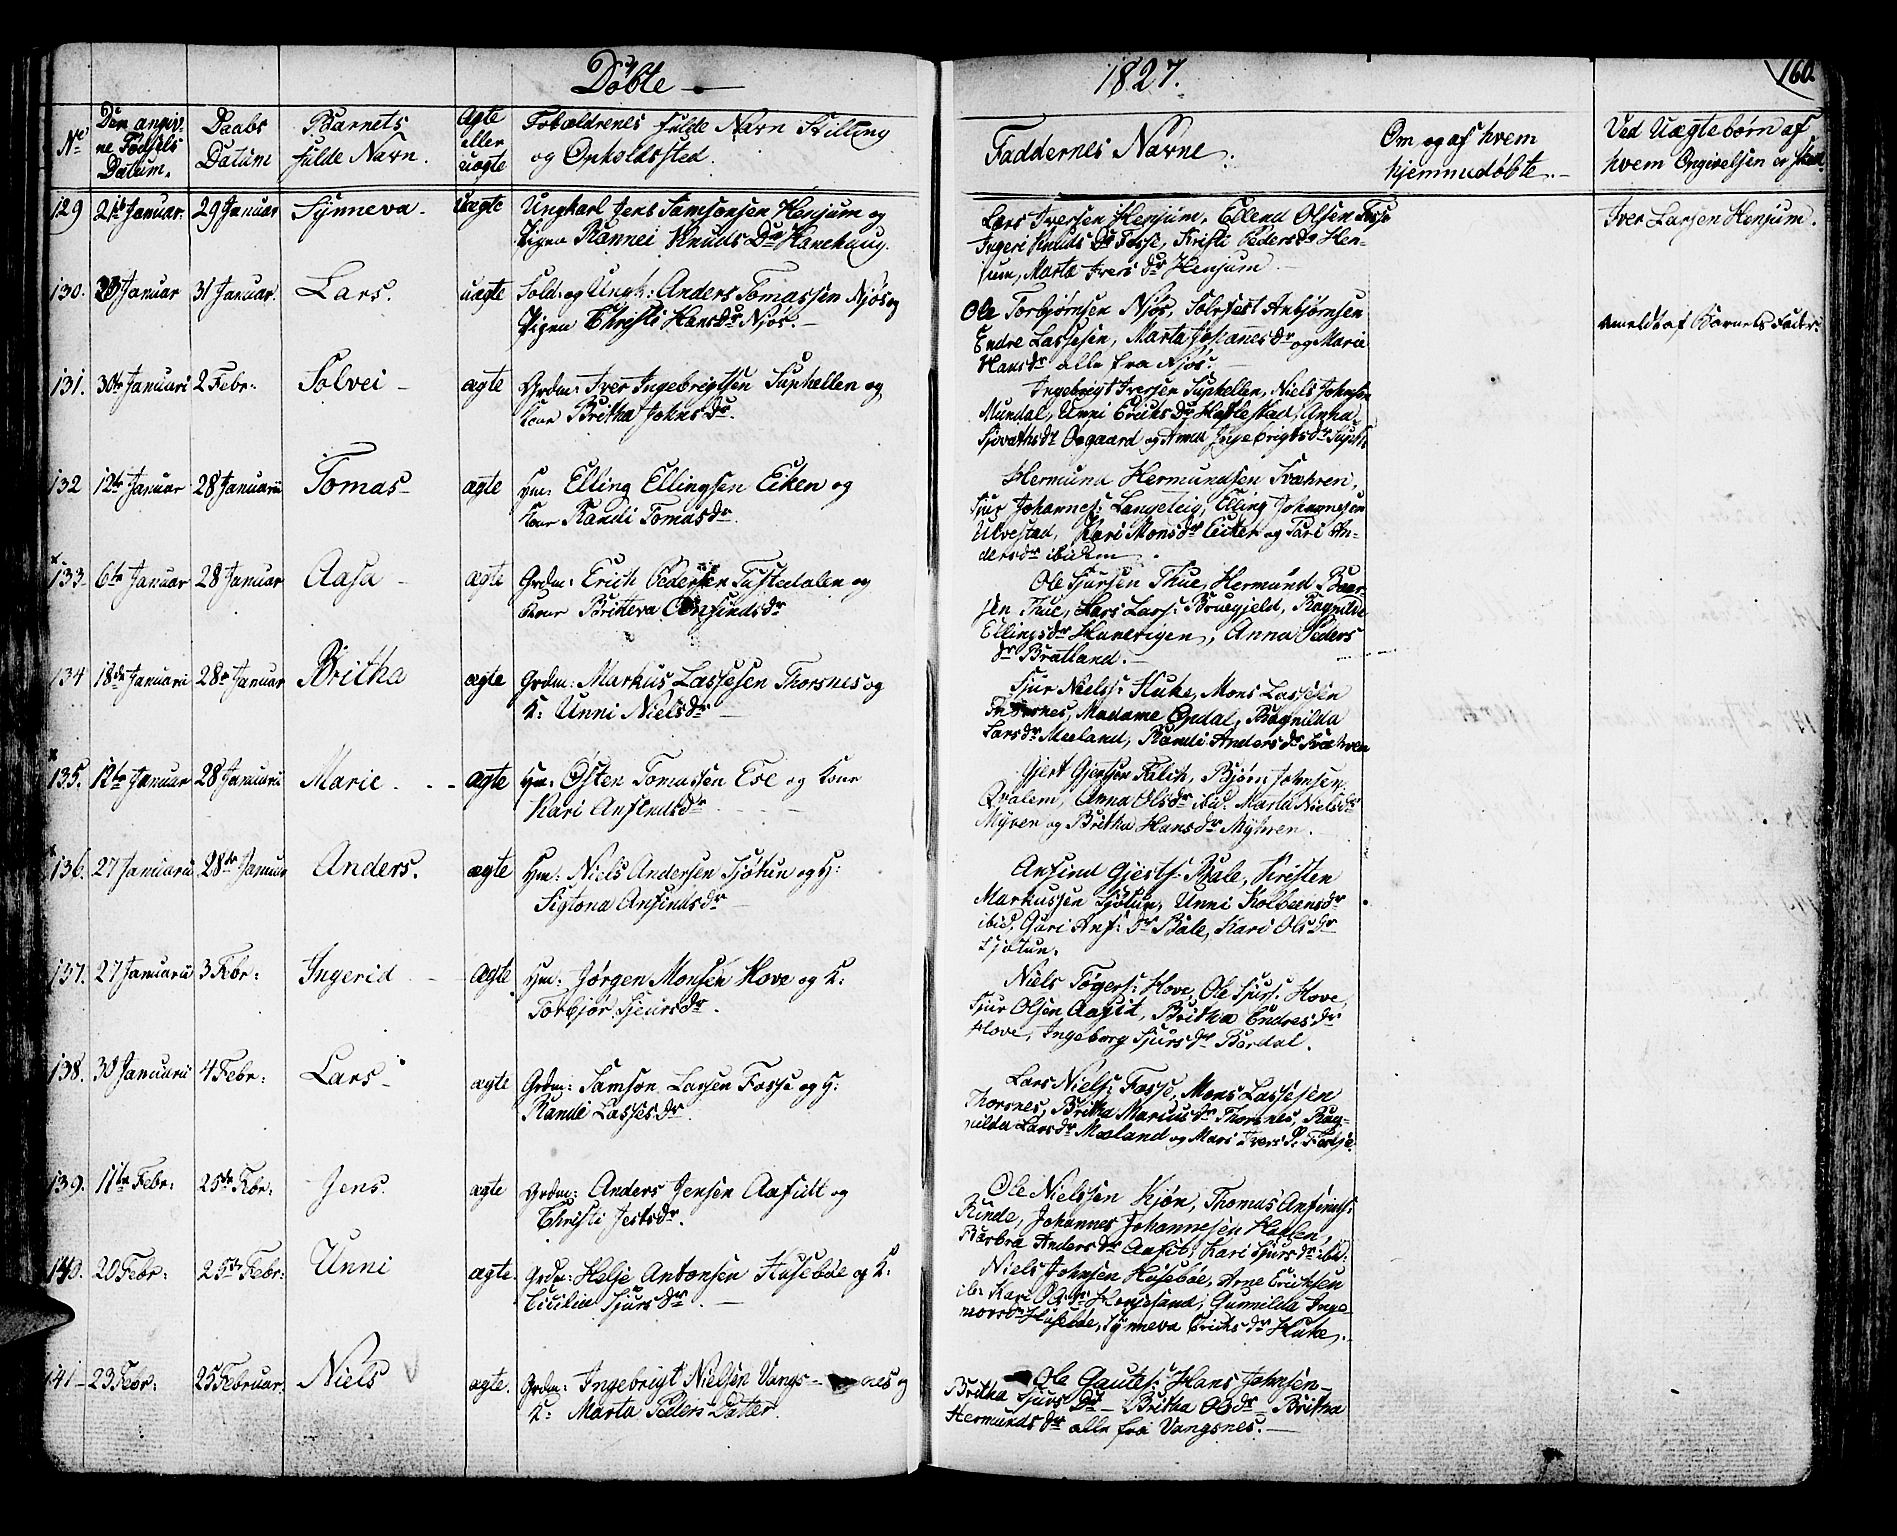 Döbte 1827. 160.
No
Den angiv-
ne Fødsels
Datum.
Daabs
Datum
Barnets
fulde Navn.
ægte
eller
uægte
Forældrenes fulde Navn Stilling
og Opholdssted.
Faddernes Navne
Om og af hvem
hjemmedøbte.
Ved Uægtebørn af
hvem Ongivelsen er skeed
129 21de Januar. 29 Januar Synneva uægte Ungkarl Jens Samsonsen Henjum og
Pigen Rannei Knuds Dr Hanehaug.
Lars Iversen Henjum, Erlend Olsen Fosse
Ingeri Knuds Dr Fosse, Kristi Peders dr Hen-
jum, Marta Ivers dr Henjum
Iver Larsen Henjum.
130. 23 Januar 31 Januar. Lars. uægte Sold: og Ungk: Anders Tomassen Njøs og
Pigen Christi Hansdr Njøs.
Ole Torbjørnsen Njøs, Solvfest Anbjørnsen
Endre Lassesen, Marta Johannesdr og Maria
Hansdr alle fra Njøs.
Anmeldt af Barnets Fader
131. 30te Januari 2 Febr: Sølvei ægte Grdm: Iver Ingebrigtsen Suphellen og
Kone Britha Johnsdr.
Ingebrigt Iversen Suphellen, Niels Johnsen
Mundal, Unni Erichs dr Haflestad, Anna
Sjovathsdr Oegaard og Anna Ingebrigtsdr Suph:
132 12te Januar 28 Januarii Tomas ægte Hm: Elling Ellingsen Eiken og
Kone Randi Tomasdr.
Hermund Hermundsen Svæhren,
Sjur Johannes: Langeteig, Elling Johannesen
Ulvestad, Kari Monsdr Eiken og Kari An-
dersdr ibidem
133. 6te Januar 28 Januar Aasa ægte Grdm: Erich Pedersen Tuftedalen og
Kone Britteva Ansfindsdr
Ole Sjursen Thue, Hermund Baar-
sen Thue, Lars Lars: Bruegjeld, Ragnilde
Ellingsdr Hanevigen, Anna Peders
dr Bratland.
134 18de Januarii 28de Januar Britha ægte Grdm: Markus Lassesen Thorsnes og
K: Unni Nielsdr
Sjur Niels: Huke, Mons Lassesen
Thorsnes, Madame Opdal, Ragnilda
Larsdr Meeland, Randi Anders dr Svæhren
135. 12te Januar 28 Januarii Marie ægte Hm: Østen Tomassen Ese og Kone
Kari Ansfindsdr
Gjert Gjertsen Falch, Bjørn Johnsen
Qvalem, Anna Olsdr ibid. Marta Nielsdr
Myren og Britha Hansdr Myhren.
136. 27 Januarii 28de Januar Anders. ægte Hm: Niels Andersen Sjøtun og H:
Sigtona Anfindsdr
Anfind Gjests: Bale, Kristen
Markussen Sjøtun, Unni Kolbeensdr
ibid, Guri Anf: dr Bale, Kari Olsdr
Sjøtun.
137. 27 Januarii 3 Febr: Ingerid ægte Hm: Jørgen Monsen Hove og K:
Torbjør Sjursdr.
Niels Tøgers: Hove, Ole Sjurs: Hove,
Sjur Olsen Aafit, Britha Endresdr
Hove, Ingeborg Sjurs dr Bordal.
138. 30 Januarii 4 Febr: Lars ægte Grdm: Samson Larsen Fosse og H:
Randi Lassesdr.
Lars Niels: Fosse, Mons Lassesen
Thorsnes, Britha Marcusdr Thorsnes, Rag-
nilda Larsdr Meeland og Mari Ivers D. Fosse
139. 11te Febr: 25de Febr: Jens. ægte Grdm: Anders Jensen Aafult og
Christi Jestsdr.
Ole Nielssen Kjøn, Thomas Anfinds:
Rinde, Johannes Johannesen Hallen,
Barbra Andersdr Aafit, Kari Sjursdr ibid:
140. 20 Febr: 25de Febr: Unni ægte. Grdm: Helje Antonsen Husebøe og K:
Cicilia Sjursdr.
Niels Johnsen Husebøe, Arne Erichsen
ib: Kari Henjesand, Gunnilda Inge-
morsdr Husebøe, Synneva Erichsdr Huke.
141 23 Febr: 25 Februar. Niels ægte. Grdm: Ingebrigt Nielsen Vangs-nes og
K: Marta Peders Datter.
Ole Gautes: Hans Johnsen
Britha Sjurs Dr - Britha Olsdr - Britha
Hermundsdr alle fra Vangsnes.